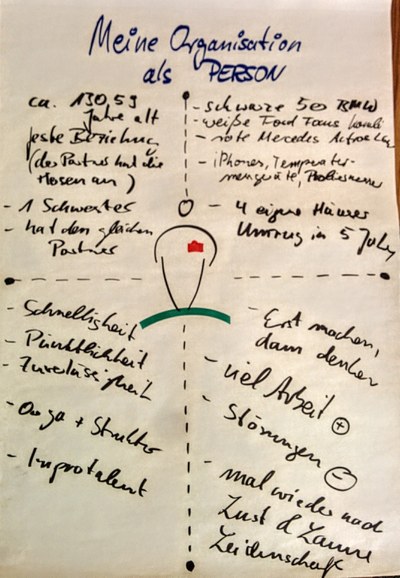 Meine Organisation
als PERSON
ca. 130,59
Jahre alt
feste Beziehung
(der Partner hat die
Hosen an)
- 1 Schwester
- hat den gleichen
Partner
- schwarze 50er BMW
- weiße Ford Focus Kombi
- rote Mercedes
- iPhones, Temperatur-
mengeräte, Probiermesser
- 4 eigene Häuser
Umzug in 5 Jahren
- Schnelligkeit
- Pünktlichkeit
- Zuverlässigkeit
- Orga + Struktur
- Improtalent
- Erst machen,
dann denken
- viel Arbeit +
- Störungen -
- mal wieder nach
Lust & Laune
Leidenschaft